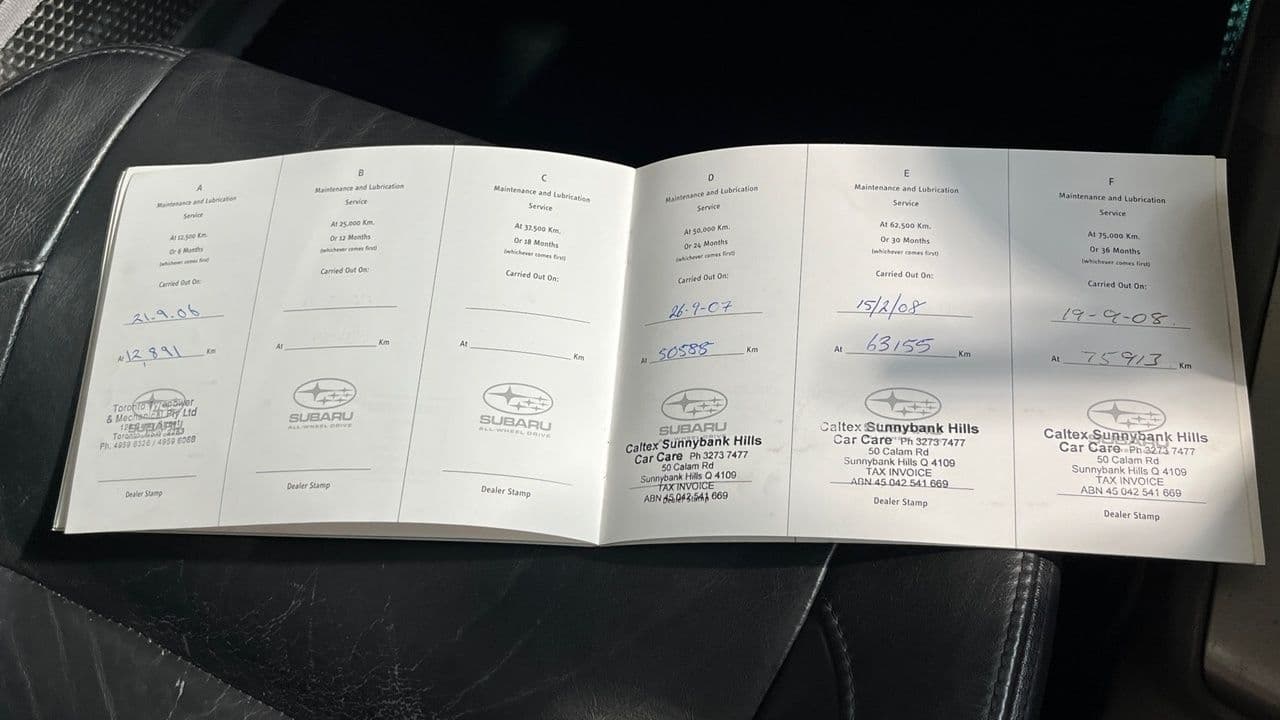 A
Maintenance and Lubrication
Service
At 12,500 Km.
Or 6 Months
(whichever comes first)
Carried Out On:
21.9.06
At 12,891 Km
Toronto
& Mechanical Pty Ltd
SUBARU
Toronto
Ph. 4959 6326 / 4959 6068
Dealer Stamp
B
Maintenance and Lubrication
Service
At 25,000 Km.
Or 12 Months
(whichever comes first)
Carried Out On:
At Km
SUBARU
ALL-WHEEL DRIVE
Dealer Stamp
C
Maintenance and Lubrication
Service
At 37,500 Km.
Or 18 Months
(whichever comes first)
Carried Out On:
At Km
SUBARU
ALL-WHEEL DRIVE
Dealer Stamp
D
Maintenance and Lubrication
Service
At 50,000 Km.
Or 24 Months
(whichever comes first)
Carried Out On:
26-9-07
At 50588 Km
SUBARU
Caltex Sunnybank Hills
Car Care Ph 3273 7477
50 Calam Rd
Sunnybank Hills Q 4109
TAX INVOICE
ABN 45 042 541 669
Dealer Stamp
E
Maintenance and Lubrication
Service
At 62,500 Km.
Or 30 Months
(whichever comes first)
Carried Out On:
15/2/08
At 63155 Km
Caltex Sunnybank Hills
Car Care Ph 3273 7477
50 Calam Rd
Sunnybank Hills Q 4109
TAX INVOICE
ABN 45 042 541 669
Dealer Stamp
F
Maintenance and Lubrication
Service
At 75,000 Km.
Or 36 Months
(whichever comes first)
Carried Out On:
19-9-08
At 75913 Km
Caltex Sunnybank Hills
Car Care Ph 3273 7477
50 Calam Rd
Sunnybank Hills Q 4109
TAX INVOICE
ABN 45 042 541 669
Dealer Stamp